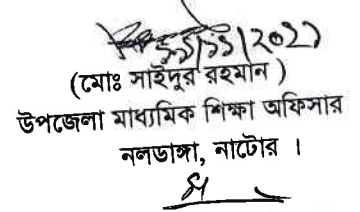 (মোঃ সাইদুর রহমান )
উপজেলা মাধ্যমিক শিক্ষা অফিসার
নলডাঙ্গা, নাটোর ।